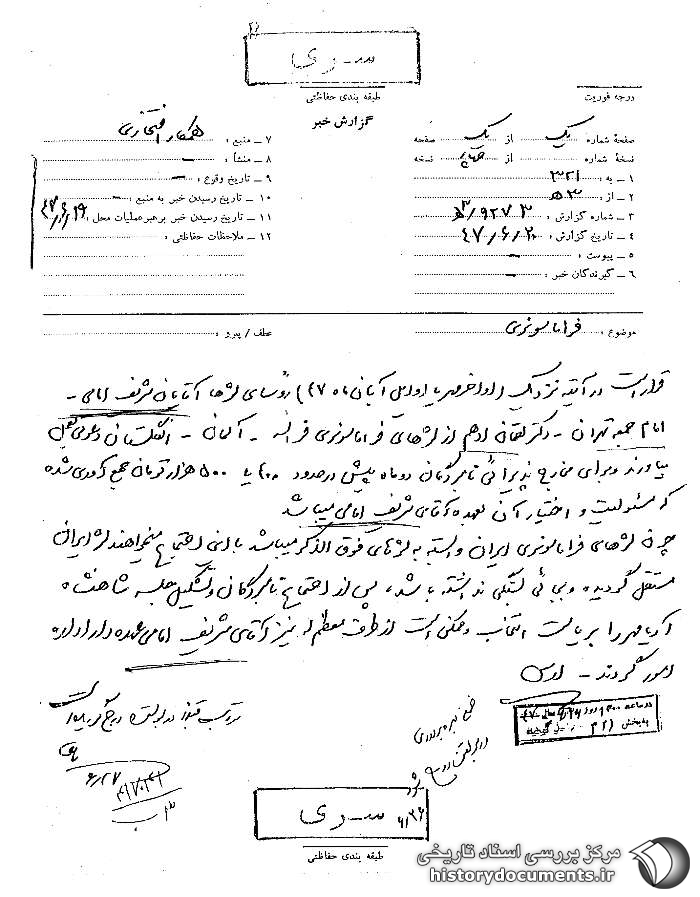 سـری
طبقه بندی حفاظتی
درجه فوریت
گزارش خبر
صفحهٔ شماره یک از یک صفحه
نسخهٔ شماره از چهار نسخه
۱ ـ به : ۳۲۱
۲ ـ از : ۳ ه
۳ ـ شماره گزارش : ۹۲۷۳ / ه ۳
۴ ـ تاریخ گزارش : ۴۷/۶/۲۰
۵ ـ پیوست : ـ
۶ ـ گیرندگان خبر : ـ
۷ ـ منبع : همکار افتخاری
۸ ـ منشأ : ـ
۹ ـ تاریخ وقوع : ـ
۱۰ ـ تاریخ رسیدن خبر به منبع : ـ
۱۱ ـ تاریخ رسیدن خبر برهبر عملیات محل : ۴۷/۶/۱۹
۱۲ ـ ملاحظات حفاظتی :
موضوع : فراماسونری
عطف / پیرو :
قرار است در آتیه نزدیک (اواخر مهر یا اوایل آبان ماه ۴۷) رؤسای لژها آقایان شریف امامی -
امام جمعه تهران - دکتر لقمان ادهم از لژهای فراماسونری فرانسه - آلمان - انگلستان دعوتی بعمل
بیاورند و برای مخارج پذیرائی نامبردگان دو ماه پیش در حدود ۴۰۰ یا ۵۰۰ هزار تومان جمع آوری شده
که مسئولیت و اختیار آن بعهده آقای شریف امامی میباشد
چون لژهای فراماسونری ایران وابسته به لژهای فوق الذکر میباشد با این اجتماع میخواهند لژ ایران
مستقل گردیده و بجائی بستگی نداشته باشد، پس از اجتماع نامبردگان و تشکیل جلسه شاهنشاه
آریامهر را بریاست انتخاب و ممکن است از طرف معظم له نیز آقای شریف امامی عهده دار اداره
امور گردند -
سـری
طبقه بندی حفاظتی
مرکز بررسی اسناد تاریخی
historydocuments.ir